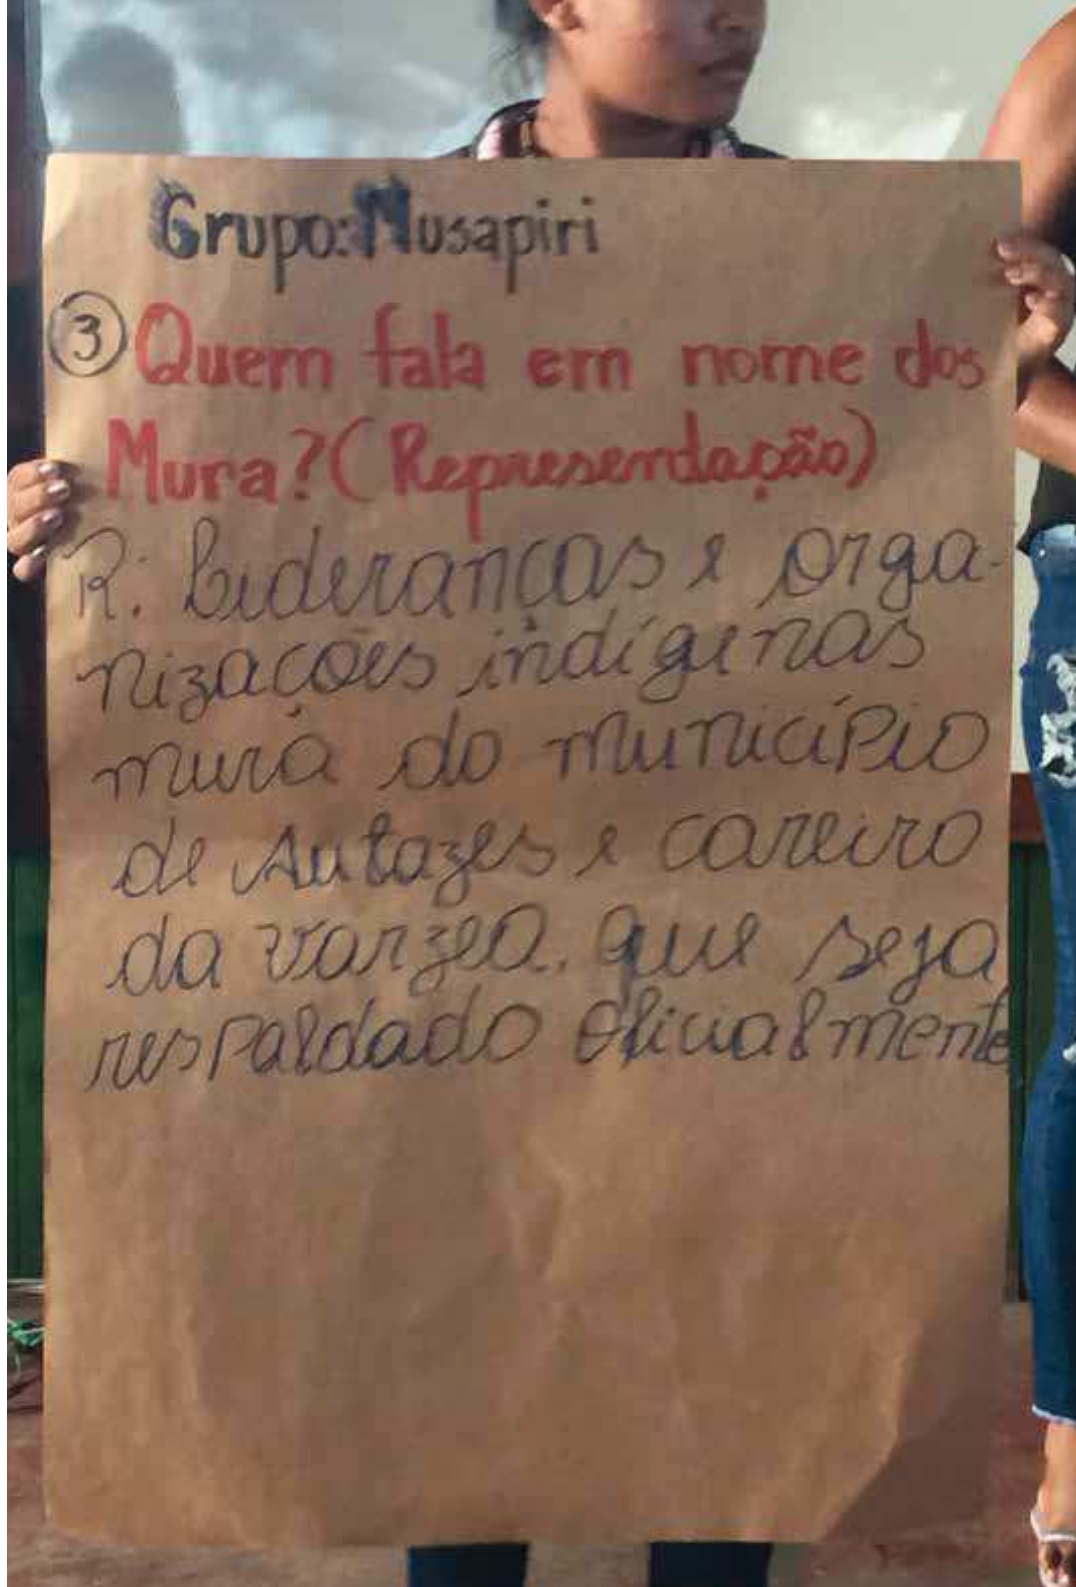 Grupo: Musapiri
3 Quem fala em nome dos
Mura? (Representação)
R: Lideranças e orga-
nizações indígenas
mura do município
de Autazes e careiro
da varzea. que seja
respaldado oficialmente